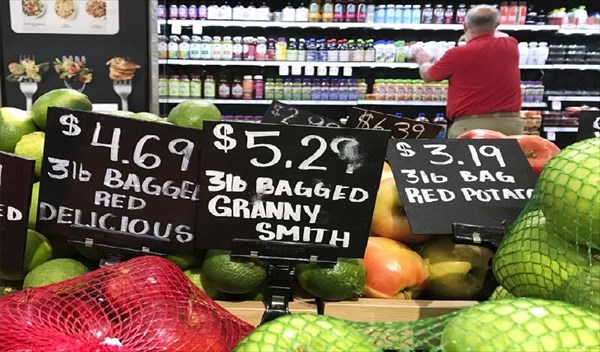 $4.69
3lb BAGGED
RED
DELICIOUS
$5.29
3lb BAGGED
GRANNY
SMITH
$3.19
3lb BAG
RED POTATO
$6.39
ED